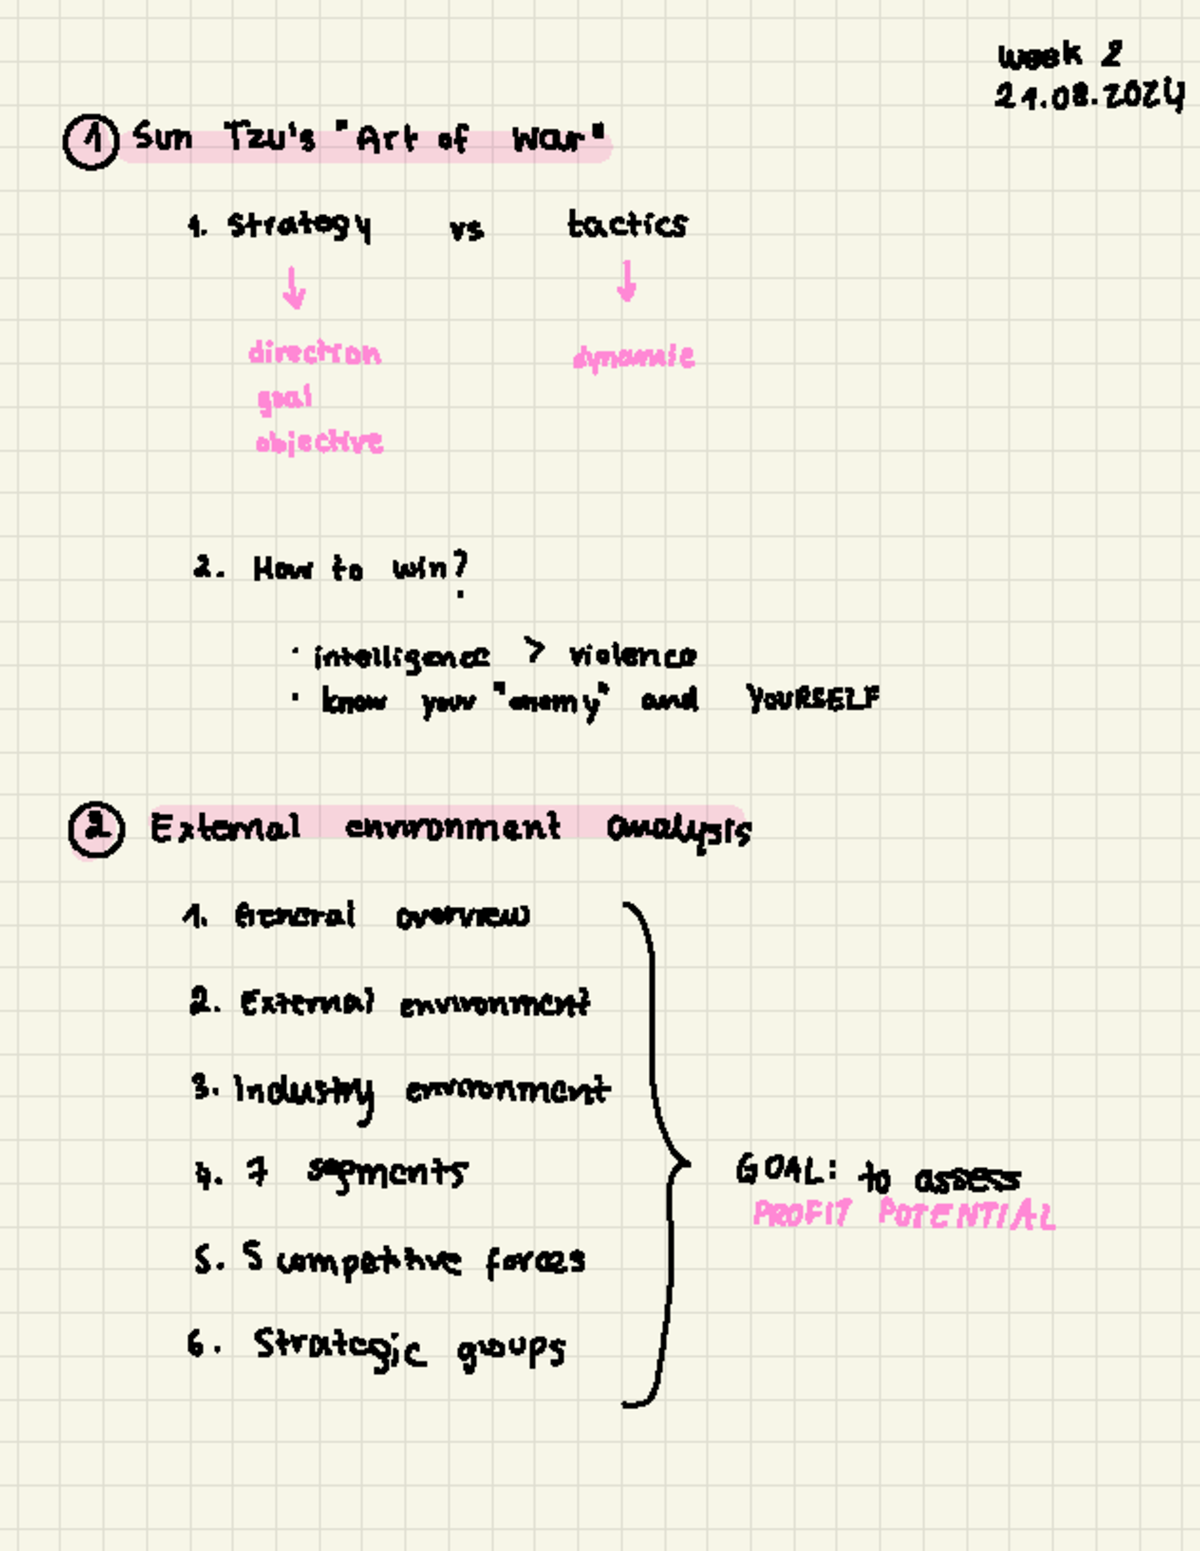 week 2
21.08.2024
① Sun Tzu's "Art of War"
1. strategy vs tactics
↓ ↓
direction dynamic
goal
objective
2. How to win?
· intelligence > violence
· know your "enemy" and YOURSELF
② External environment analysis
1. General overview
2. External environment
3. Industry environment
4. 7 segments
GOAL: to assess
PROFIT POTENTIAL
5. 5 competitive forces
6. Strategic groups